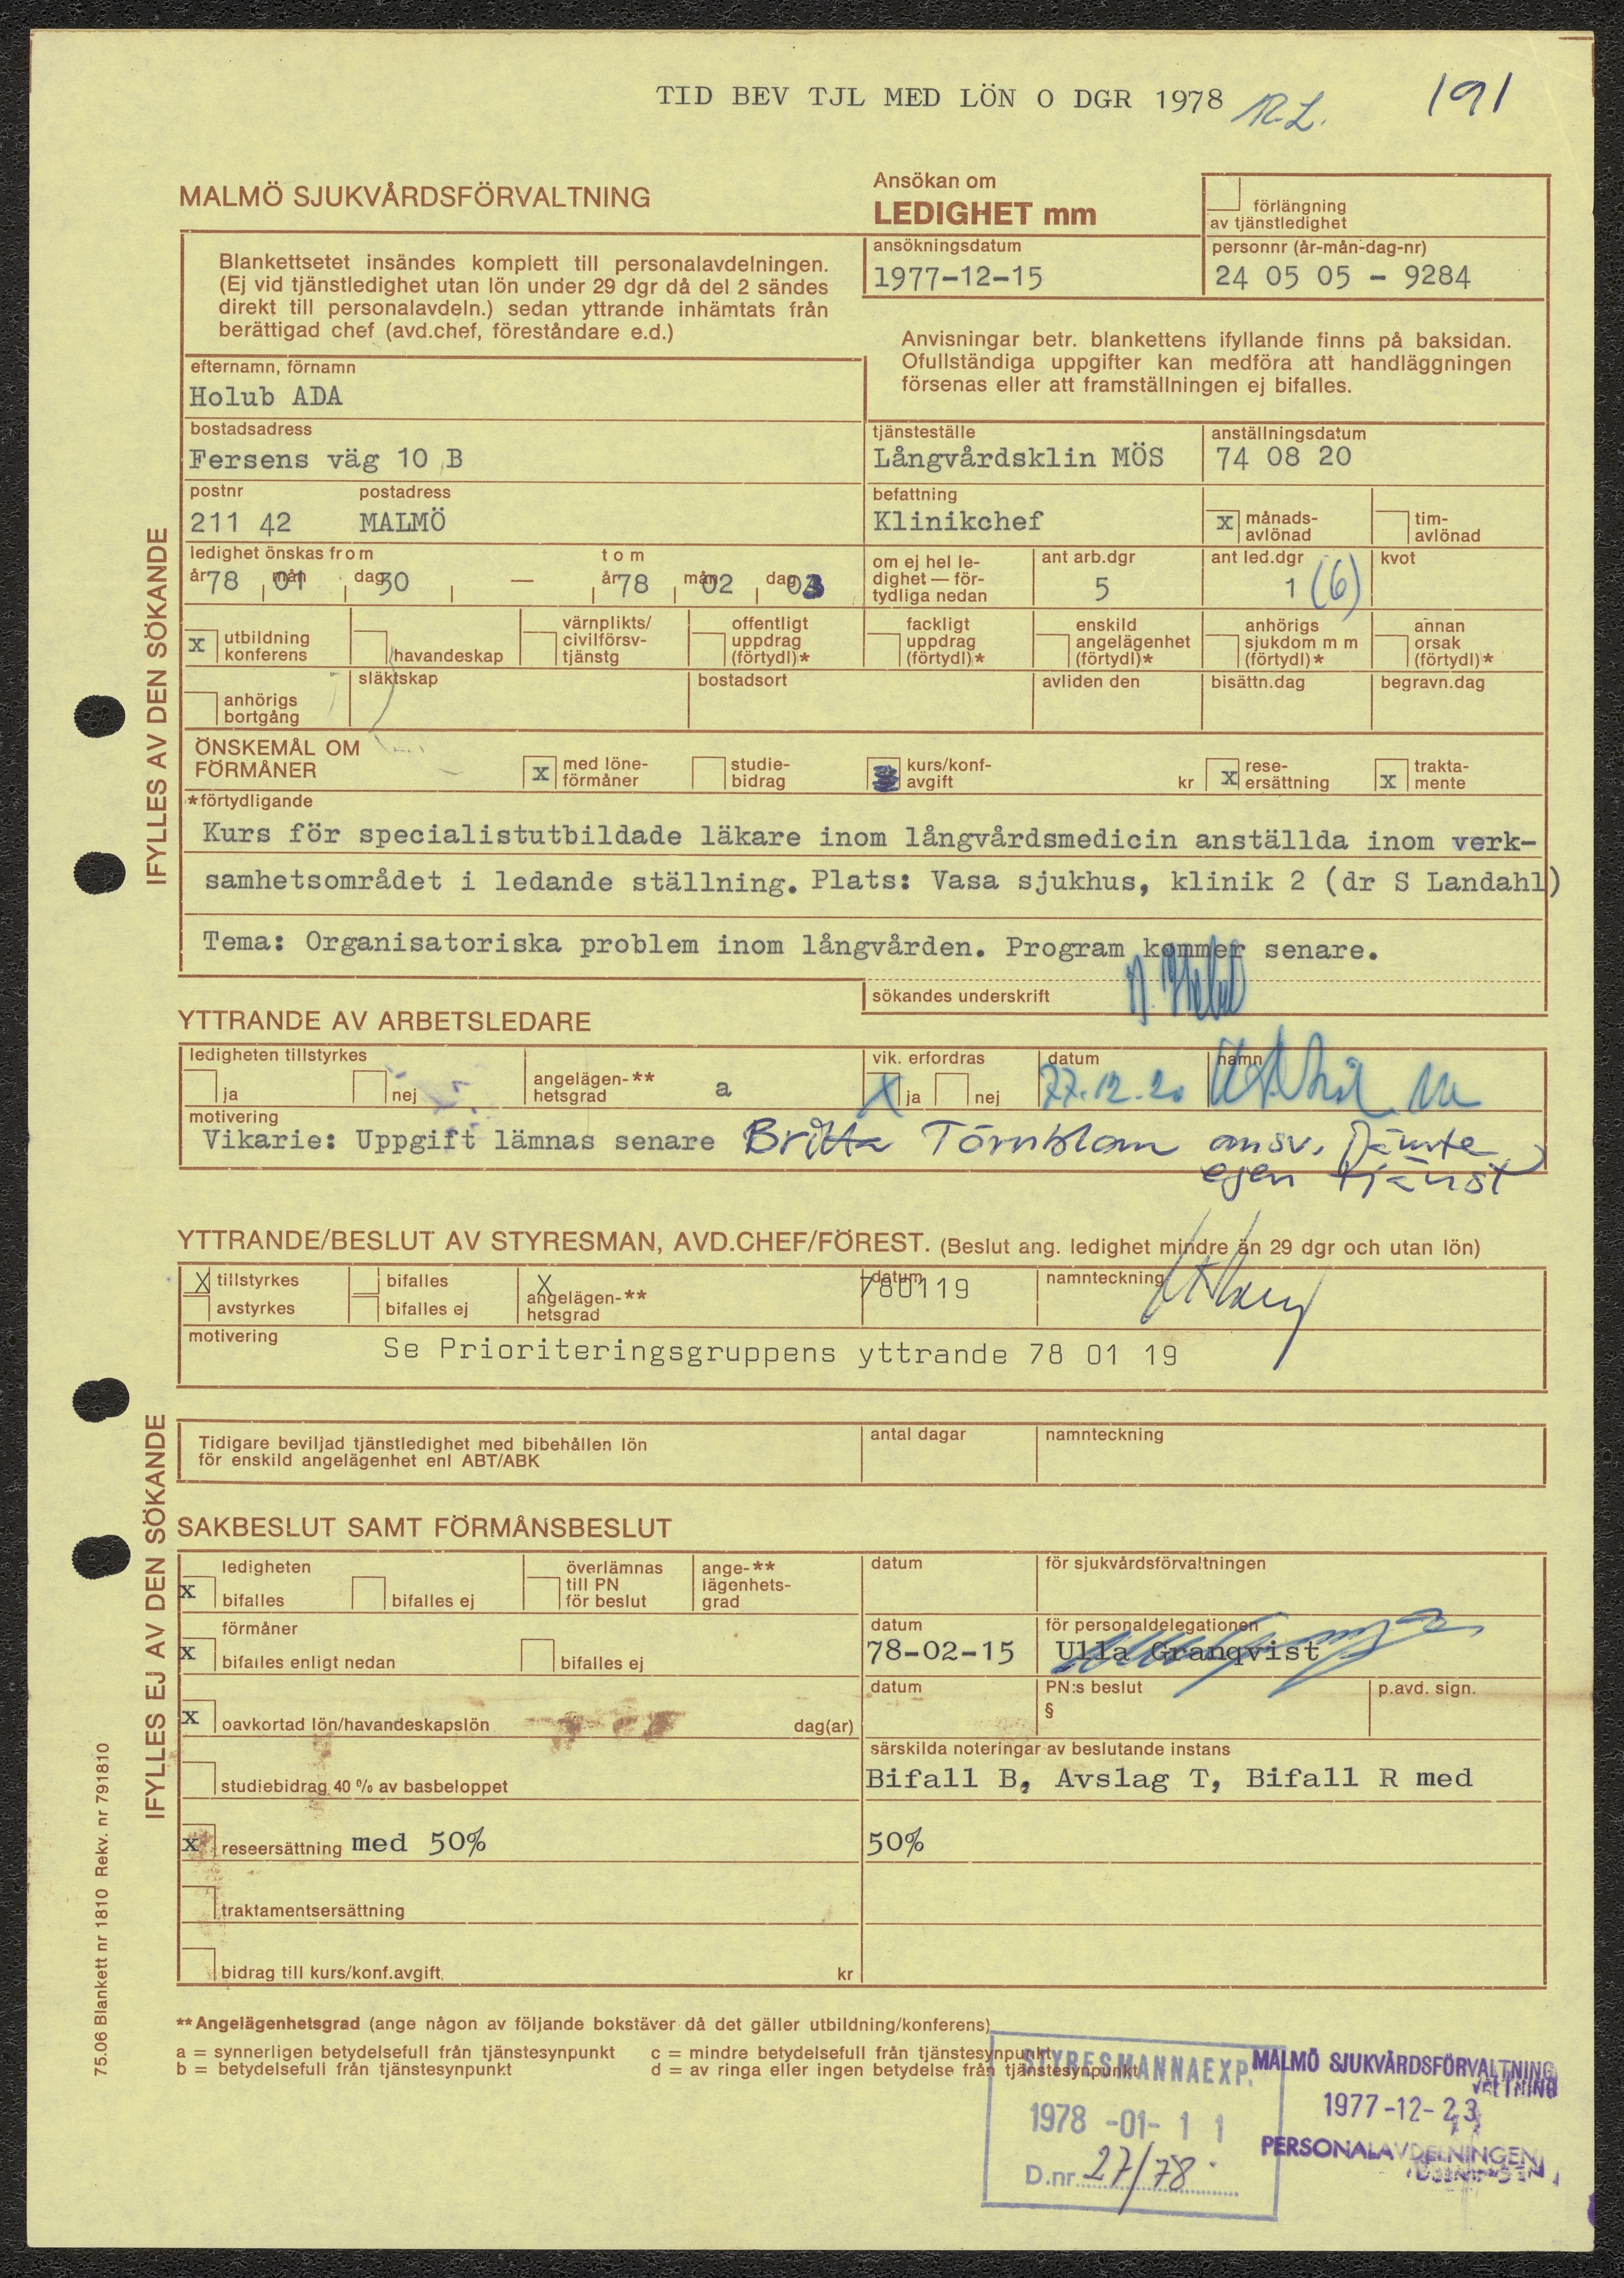 TID BEV TJL MED LÖN 0 DGR 1978 R.L. 191
MALMÖ SJUKVÅRDSFÖRVALTNING
Ansökan om
LEDIGHET mm
förlängning
av tjänstledighet
ansökningsdatum
1977-12-15
personnr (år-mån-dag-nr)
24 05 05 - 9284
Blankettsetet insändes komplett till personalavdelningen.
(Ej vid tjänstledighet utan lön under 29 dgr då del 2 sändes
direkt till personalavdeln.) sedan yttrande inhämtats från
berättigad chef (avd.chef, föreståndare e.d.)
Anvisningar betr. blankettens ifyllande finns på baksidan.
Ofullständiga uppgifter kan medföra att handläggningen
försenas eller att framställningen ej bifalles.
IFYLLES AV DEN SÖKANDE
efternamn, förnamn
Holub ADA
bostadsadress
Fersens väg 10 B
tjänsteställe
Långvårdsklin MÖS
anställningsdatum
74 08 20
postnr postadress
211 42 MALMÖ
befattning
Klinikchef
x månads-
avlönad
tim-
avlönad
ledighet önskas from tom
år 78 mån 01 dag 30 — år 78 mån 02 dag 03
om ej hel le-
dighet — för-
tydliga nedan
ant arb.dgr
5
ant led.dgr
1 (6)
kvot
x utbildning
konferens
havandeskap
värnplikts/
civilförsv-
tjänstg
offentligt
uppdrag
(förtydl)*
fackligt
uppdrag
(förtydl)*
enskild
angelägenhet
(förtydl)*
anhörigs
sjukdom m m
(förtydl)*
annan
orsak
(förtydl)*
anhörigs
bortgång
släktskap
bostadsort
avliden den
bisättn.dag
begravn.dag
ÖNSKEMÅL OM
FÖRMÅNER
x med löne-
förmåner
studie-
bidrag
kurs/konf-
avgift kr
x rese-
ersättning
x trakta-
mente
*förtydligande
Kurs för specialistutbildade läkare inom långvårdsmedicin anställda inom verk-
samhetsområdet i ledande ställning. Plats: Vasa sjukhus, klinik 2 (dr S Landahl)
Tema: Organisatoriska problem inom långvården. Program kommer senare.
sökandes underskrift
YTTRANDE AV ARBETSLEDARE
ledigheten tillstyrkes
ja nej
angelägen-**
hetsgrad a
vik. erfordras
X ja nej
datum
77.12.20
namn
motivering
Vikarie: Uppgift lämnas senare Britta Törnblom ansv. jämte
egen tjänst
YTTRANDE/BESLUT AV STYRESMAN, AVD.CHEF/FÖREST. (Beslut ang. ledighet mindre än 29 dgr och utan lön)
X tillstyrkes
avstyrkes
bifalles
bifalles ej
X
angelägen-**
hetsgrad
datum
780119
namnteckning
motivering
Se Prioriteringsgruppens yttrande 78 01 19
IFYLLES EJ AV DEN SÖKANDE
Tidigare beviljad tjänstledighet med bibehållen lön
för enskild angelägenhet enl ABT/ABK
antal dagar
namnteckning
SAKBESLUT SAMT FÖRMÅNSBESLUT
ledigheten
x bifalles bifalles ej
överlämnas
till PN
för beslut
ange-**
lägenhets-
grad
datum
för sjukvårdsförvaltningen
förmåner
x bifalles enligt nedan bifalles ej
datum
78-02-15
för personaldelegationen
Ulla Granqvist
x oavkortad lön/havandeskapslön dag(ar)
datum
PN:s beslut
§
p.avd. sign.
studiebidrag 40 % av basbeloppet
särskilda noteringar av beslutande instans
Bifall B, Avslag T, Bifall R med
x reseersättning med 50%
50%
traktamentsersättning
bidrag till kurs/konf.avgift kr
75.06 Blankett nr 1810 Rekv. nr 791810
**Angelägenhetsgrad (ange någon av följande bokstäver då det gäller utbildning/konferens)
a = synnerligen betydelsefull från tjänstesynpunkt
b = betydelsefull från tjänstesynpunkt
c = mindre betydelsefull från tjänstesynpunkt
d = av ringa eller ingen betydelse från tjänstesynpunkt
STYRESMANNAEXP.
1978 -01- 1 1
D.nr 27/78
MALMÖ SJUKVÅRDSFÖRVALTNING
1977-12-23
PERSONALAVDELNINGEN